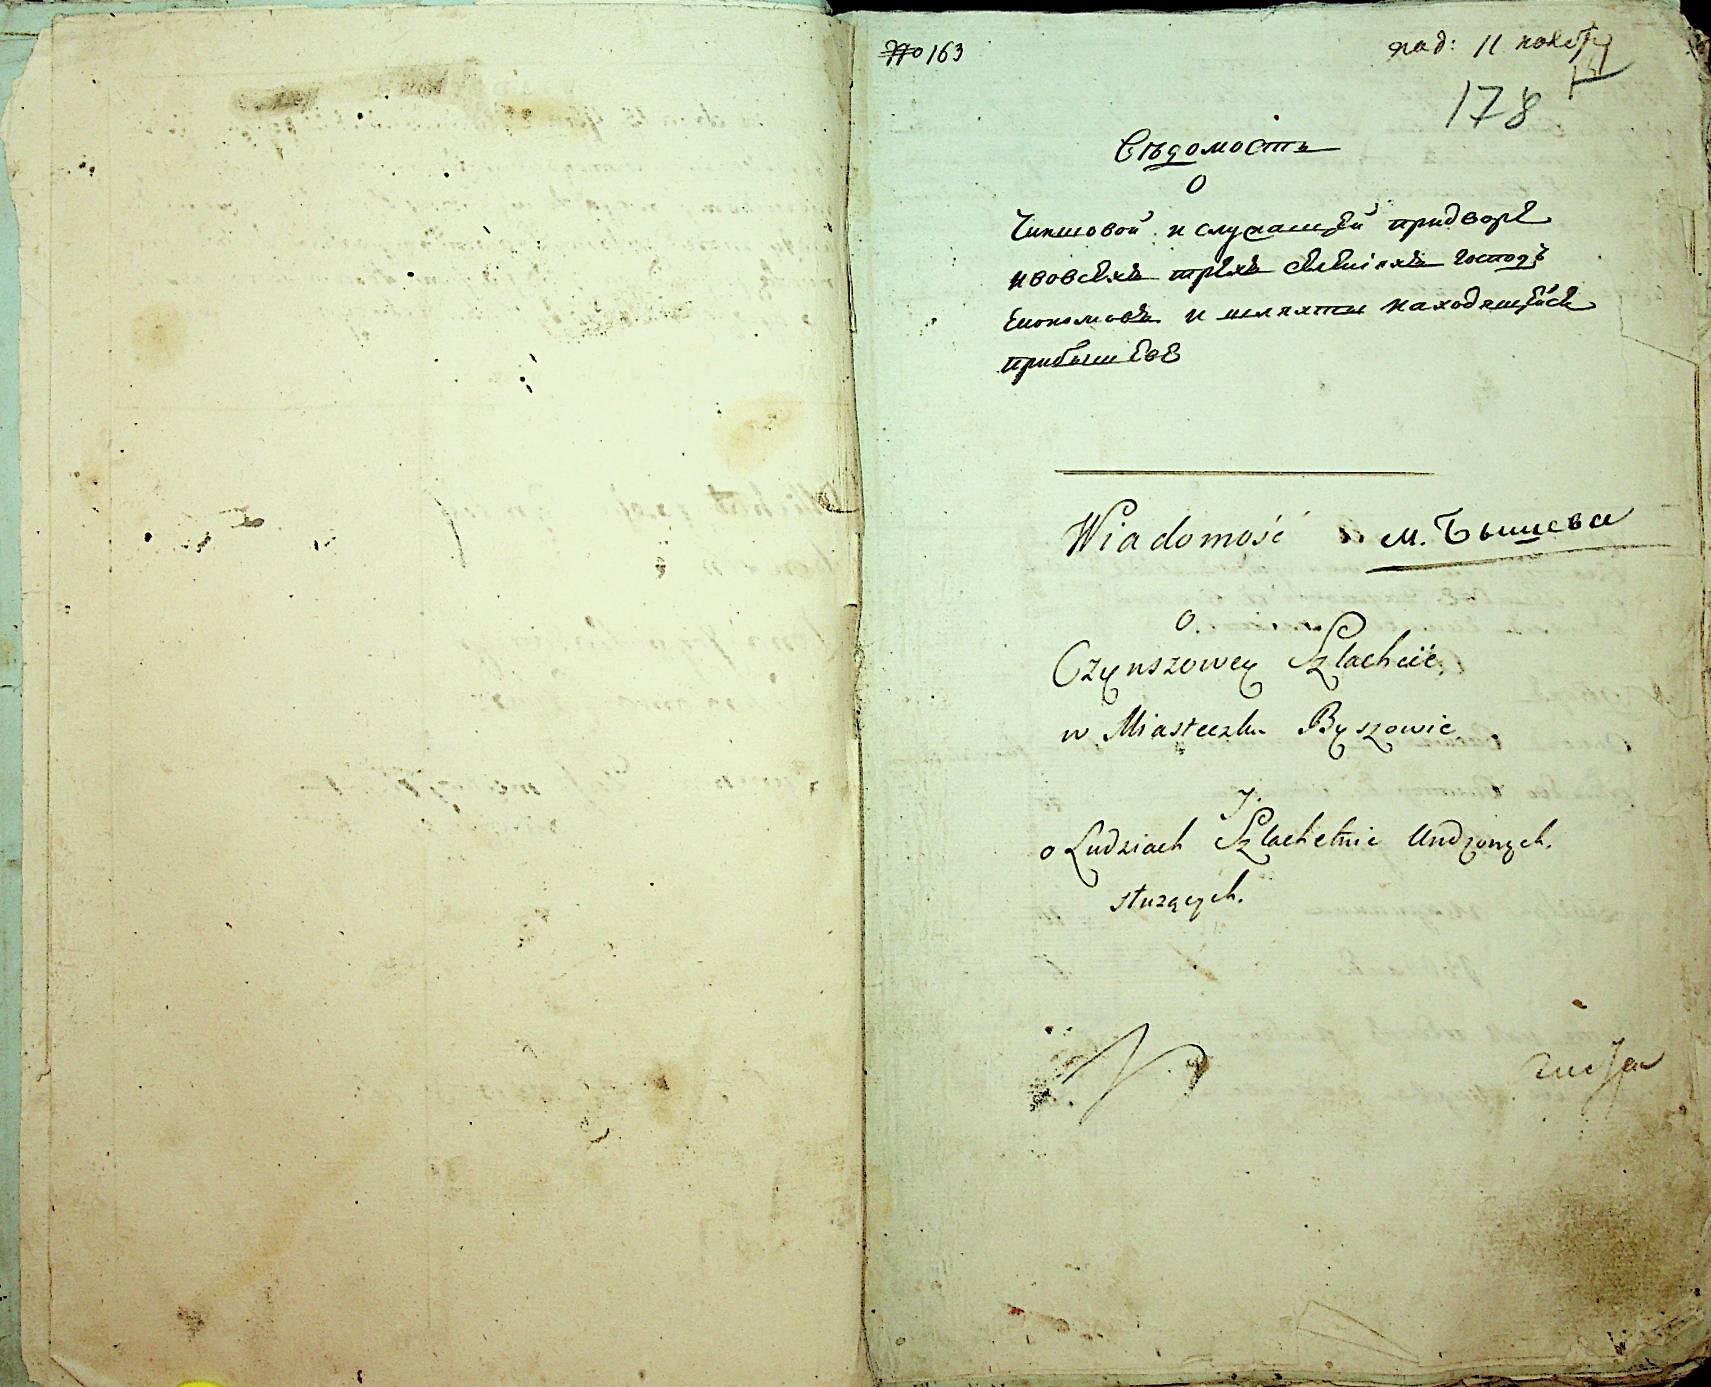 No 163
под: 11 ноября
178
Вѣдомость
О
Чиншовой и служащей при дворѣ
трехъ селенияхъ господъ
економовъ и шляхты находящейся
Wiadomość м. Бышева
O.
Czynszowey Szlachcie,
w Miasteczku Byszowie.
J.
o Ludziach Szlachetnie Urodzonych.
służących.